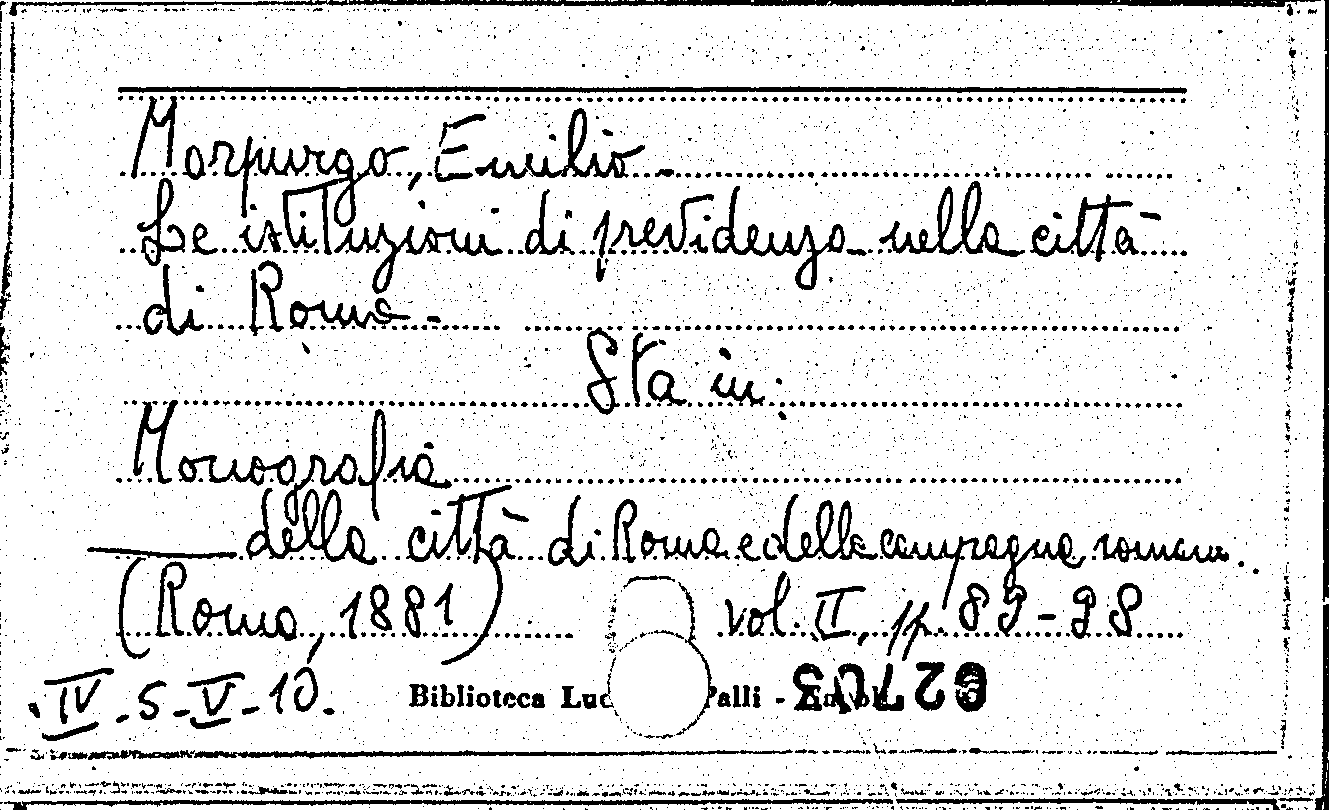 Morpurgo, Emilio -
Le istituzioni di previdenza nella città
di Roma -
Sta in:
Monografia
della città di Roma e della campagna romana..
(Roma, 1881) vol. II, pp. 89-98
IV-5-V-10. Biblioteca Luc Palli -